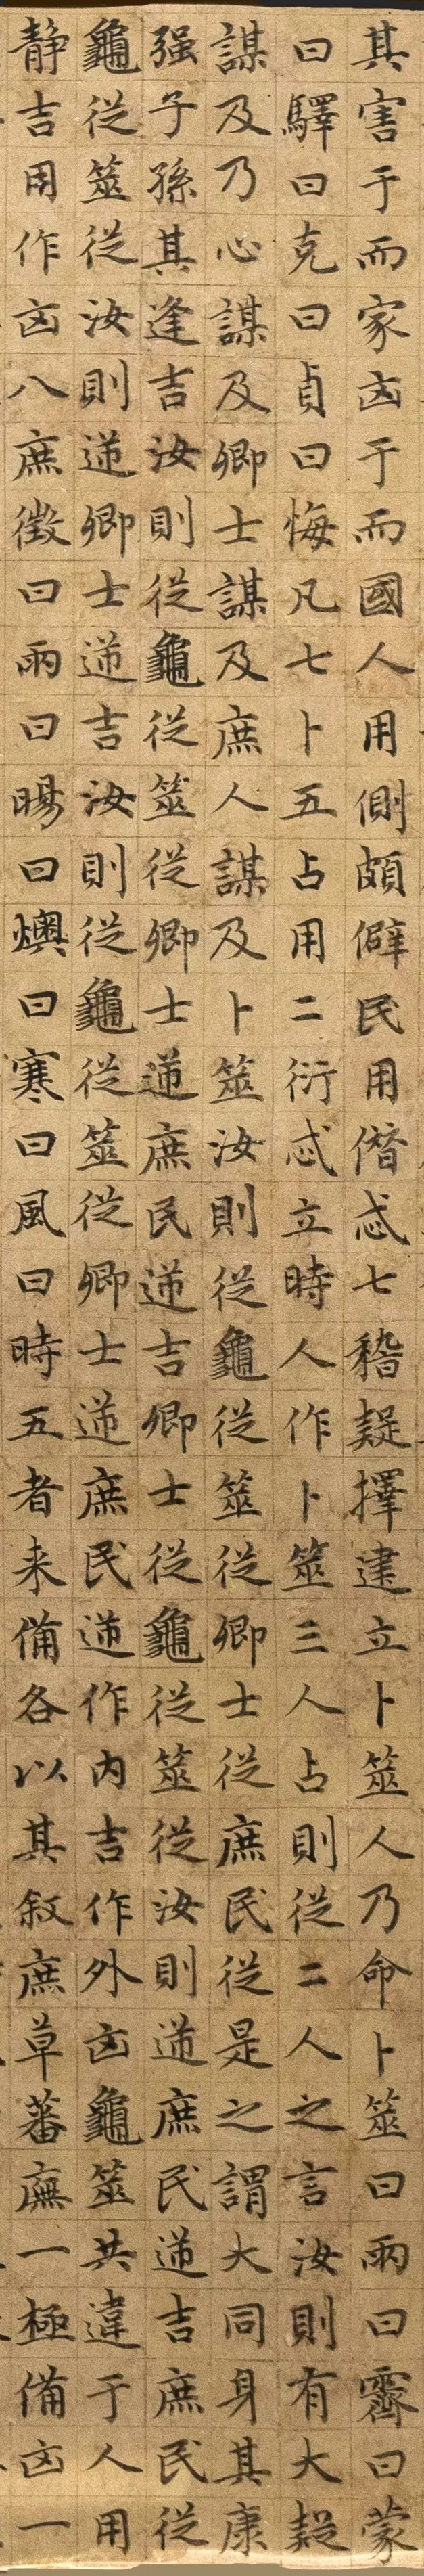 其害于而家凶于而國人用側頗僻民用僭忒七稽疑擇建立卜筮人乃命卜筮曰雨曰霽曰蒙
曰驛曰克曰貞曰悔凡七卜五占用二衍忒立時人作卜筮三人占則從二人之言汝則有大疑
謀及乃心謀及卿士謀及庶人謀及卜筮汝則從龜從筮從卿士從庶民從是之謂大同身其康
强子孫其逢吉汝則從龜從筮從卿士逆庶民逆吉卿士從龜從筮從汝則逆庶民逆吉庶民從
龜從筮從汝則逆卿士逆吉汝則從龜從筮從卿士逆庶民逆作内吉作外凶龜筮共違于人用
静吉用作凶八庶徵曰雨曰暘曰燠曰寒曰風曰時五者来備各以其敘庶草蕃廡一極備凶一